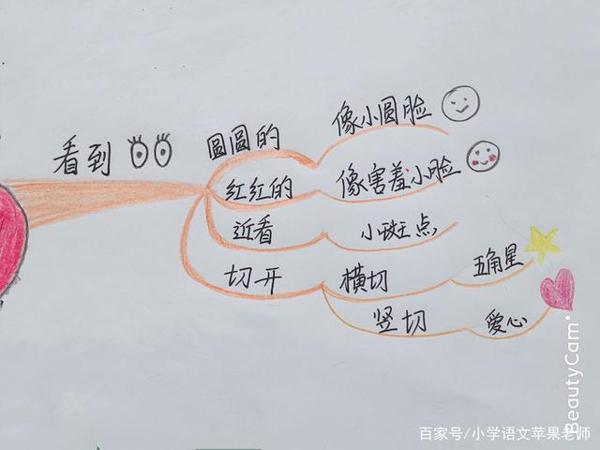 看到
圆圆的 像小圆脸
红红的 像害羞小脸
近看 小斑点
切开 横切 五角星
竖切 爱心
BeautyCam.
百家号/小学语文苹果老师